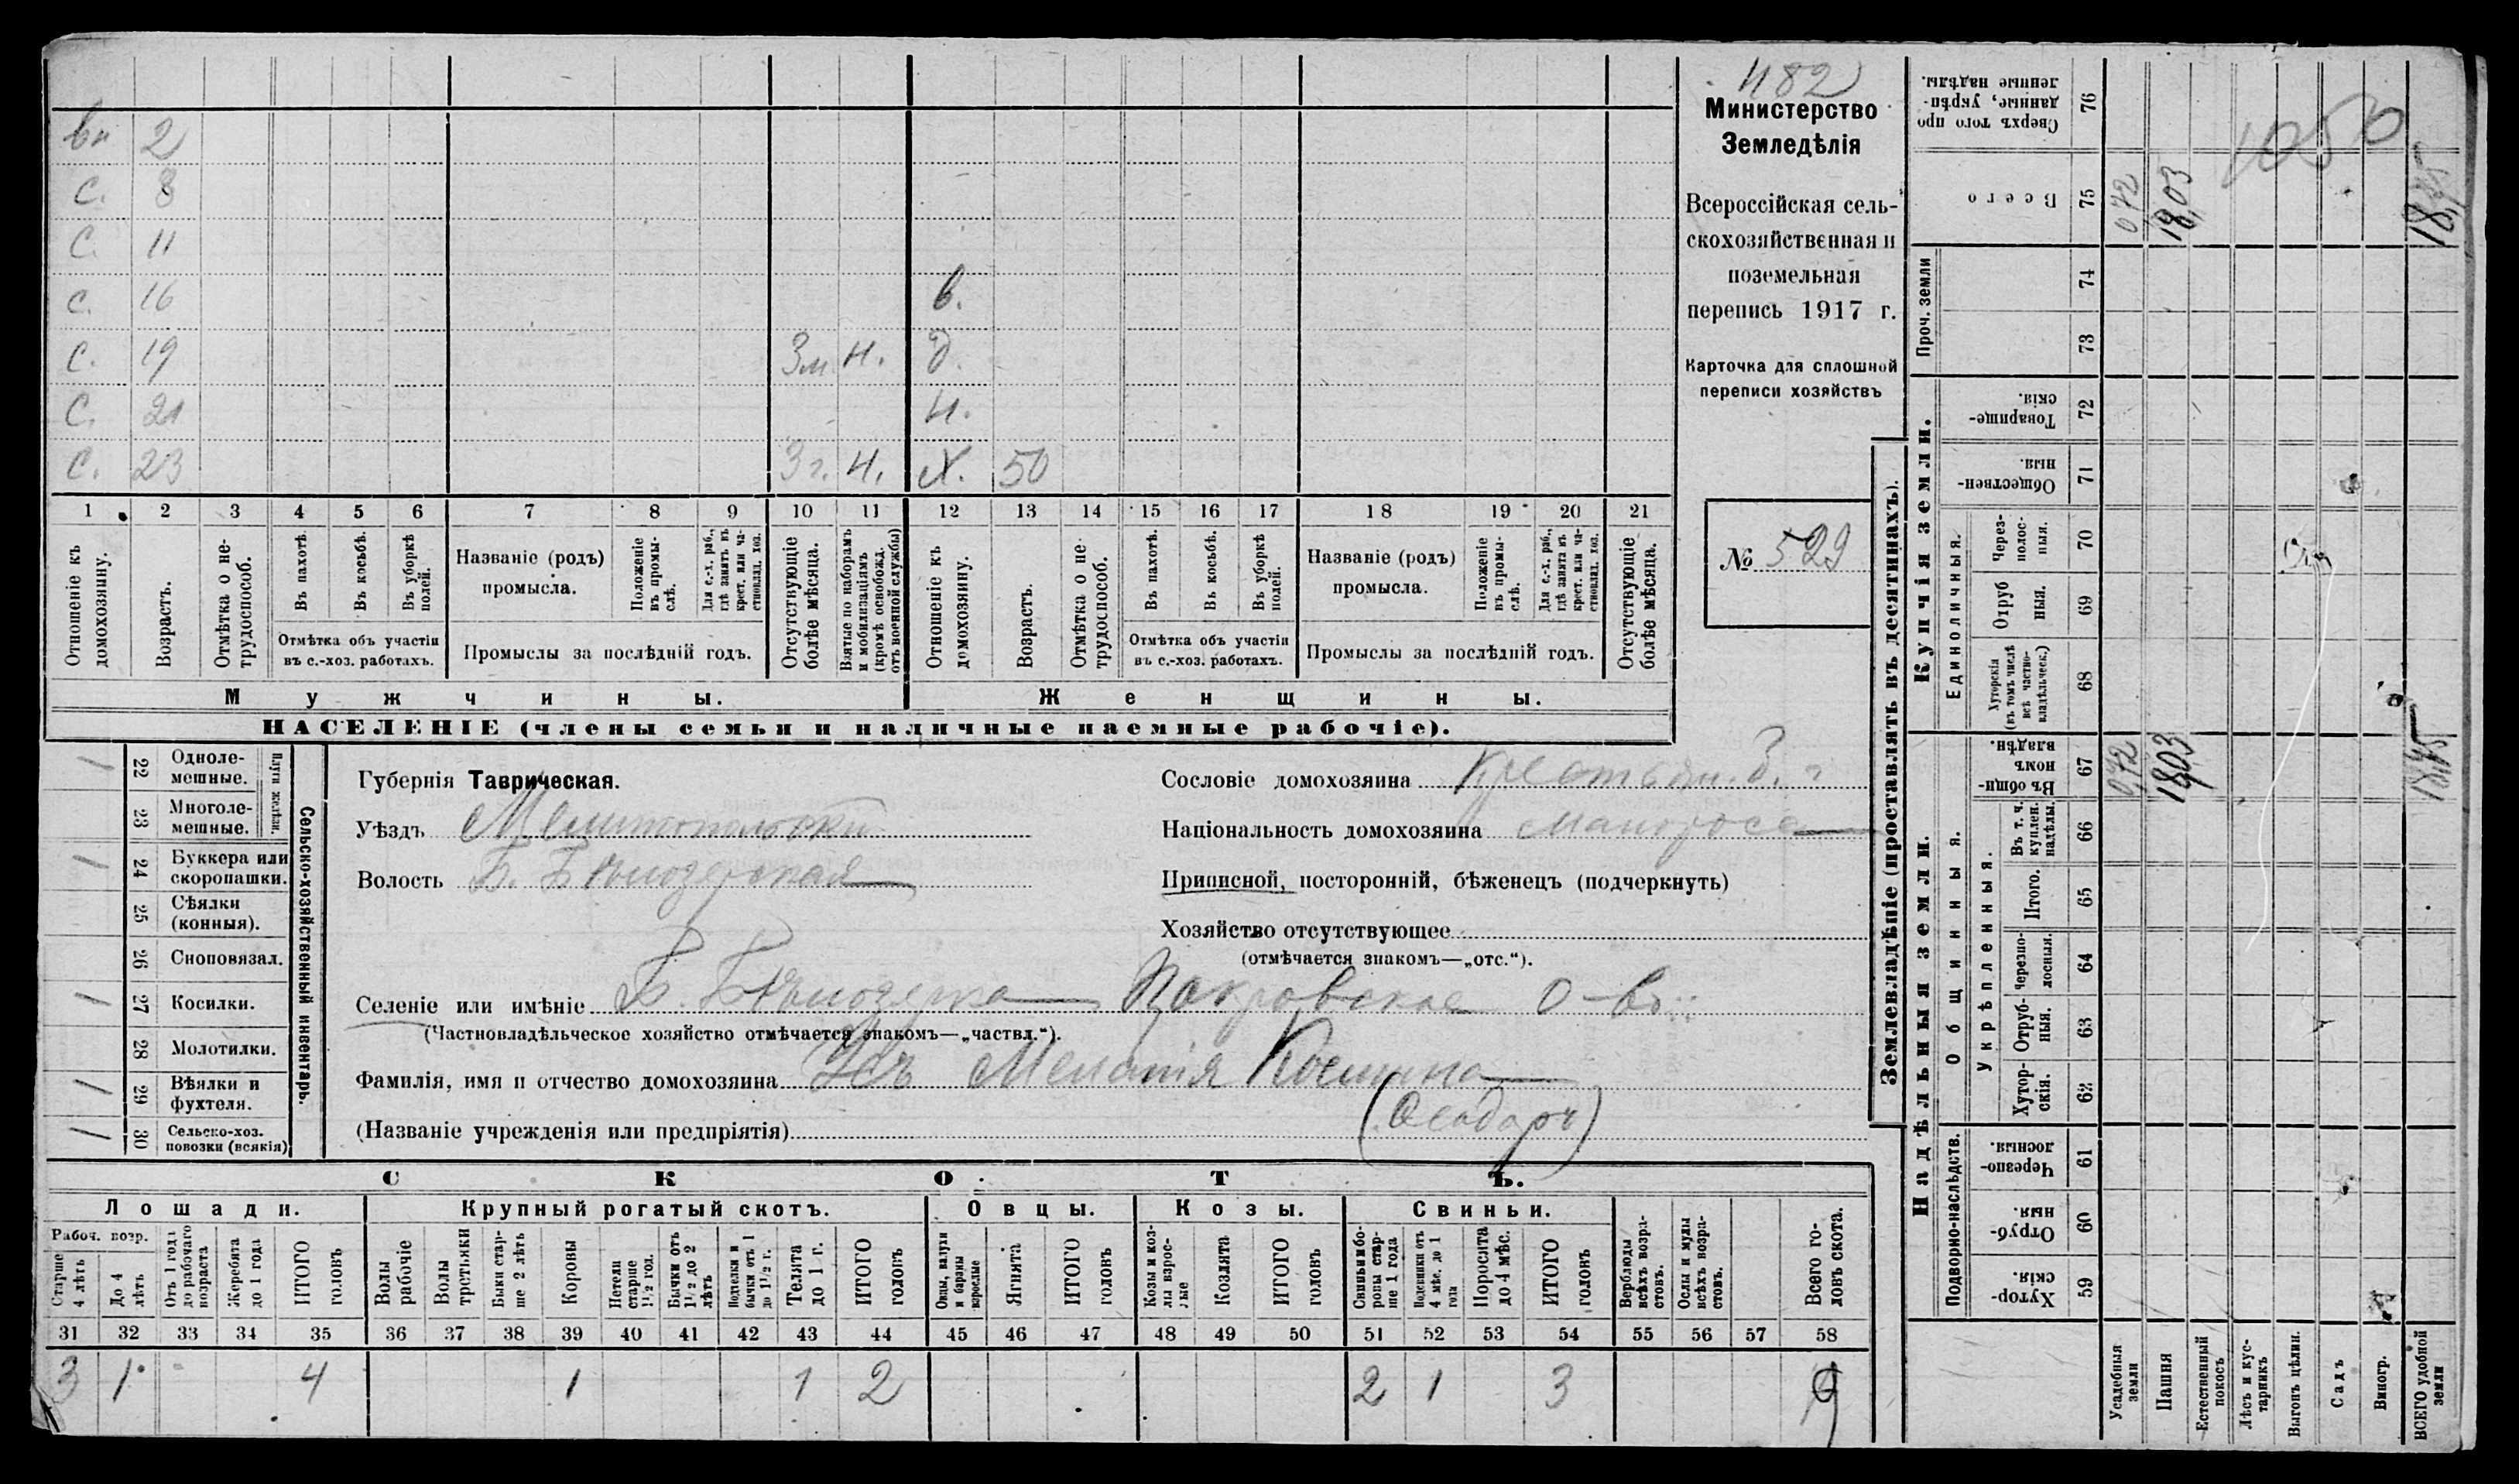 1182
Министерство
Земледѣлія
Всероссійская сель-
скохозяйственная и
поземельная
перепись 1917 г.
Карточка для сплошной
переписи хозяйствъ
№ 529
вн 2
с. 8
с. 11
с. 16 в.
с. 19 3м. н. д.
с. 21 н.
с. 23 3г. н. х. 50
1 2 3 4 5 6 7 8 9 10 11 12 13 14 15 16 17 18 19 20 21
Отношеніе къ домохозяину.
Возрастъ.
Отмѣтка о не-трудоспособ.
Въ пахотѣ.
Въ косьбѣ.
Въ уборкѣ полей.
Отмѣтка объ участіи въ с.-хоз. работахъ.
Названіе (родъ) промысла.
Положеніе въ промы-слѣ.
Для с.-х. раб., гдѣ занятъ въ крест. или ча-стновлад. хоз.
Промыслы за послѣдній годъ.
Отсутствующіе болѣе мѣсяца.
Взятые по наборамъ и мобилизаціямъ (кромѣ освобожд. отъ военной службы)
Отношеніе къ домохозяину.
Возрастъ.
Отмѣтка о не трудоспособ.
Въ пахотѣ.
Въ косьбѣ.
Въ уборкѣ полей.
Отмѣтка объ участіи въ с.-хоз. работахъ.
Названіе (родъ) промысла.
Положеніе въ промы-слѣ.
Для с.-х. раб., гдѣ занятъ въ крест. или ча-стновлад. хоз.
Промыслы за послѣдній годъ.
Отсутствующіе болѣе мѣсяца.
Мужчины. Женщины.
НАСЕЛЕНІЕ (члены семьи и наличные наемные рабочіе).
Сельско-хозяйственный инвентарь.
Плуги желѣзн.
/ 22 Одноле-мешные.
23 Многоле-мешные.
/ 24 Буккера или скоропашки.
25 Сѣялки (конныя).
26 Сноповязал.
/ 27 Косилки.
28 Молотилки.
/ 29 Вѣялки и фухтеля.
/ 30 Сельско-хоз. повозки (всякія)
Губернія Таврическая.
Уѣздъ Мелитопольскій
Волость Б. Бѣлозерская
Сословіе домохозяина Крестьян.
Національность домохозяина Малоросс
Приписной, посторонній, бѣженецъ (подчеркнуть)
Хозяйство отсутствующее
(отмѣчается знакомъ—„отс.“).
Селеніе или имѣніе Б. Бѣлозерка Покровское о-во
(Частновладѣльческое хозяйство отмѣчается знакомъ—„частвл.“).
Фамилія, имя и отчество домохозяина Меланія
(Названіе учрежденія или предпріятія)
СКОТЪ.
Лошади. Крупный рогатый скотъ. Овцы. Козы. Свиньи.
Рабоч. возр.
Старше 4 лѣтъ
До 4 лѣтъ
Отъ 1 года до рабочаго возраста
Жеребята до 1 года
ИТОГО головъ
Волы рабочіе
Волы третьяки
Быки стар-ше 2 лѣтъ
Коровы
Нетели старше 1½ год.
Бычки отъ 1½ до 2 лѣтъ
Подтелки и бычки отъ 1 до 1½ г.
Телята до 1 г.
ИТОГО головъ
Овцы, валухи и бараны взрослые
Ягнята
ИТОГО головъ
Козы и коз-лы взрос-лые
Козлята
ИТОГО головъ
Свиньи и бо-ровы стар-ше 1 года
Подсвинки отъ 4 мѣс. до 1 года
Поросята до 4 мѣс.
ИТОГО головъ
Верблюды всѣхъ возра-стовъ.
Ослы и мулы всѣхъ возра-стовъ.
Всего го-ловъ скота.
31 32 33 34 35 36 37 38 39 40 41 42 43 44 45 46 47 48 49 50 51 52 53 54 55 56 57 58
3 1 - 4 1 1 2 2 1 3 9
Землевладѣніе (проставлять въ десятинахъ).
Надѣльныя земли.
Купчія земли.
Проч. земли
Подворно-наслѣдств.
Общинныя.
Укрѣпленныя.
Единоличныя.
Сверхъ того про данные, укрѣп-ленные надѣлы. 76
Всего 75 0,72 18,03 18,75
74
73
Товарище-скія. 72
Обществен-ныя. 71
Через-полос-ныя. 70
Отруб ныя. 69
Хуторскія (въ томъ числѣ всѣ частно-владѣльческ.) 68
Въ общин-номъ владѣн. 67 0,72 18,03 18,75
Въ т. ч. куплен. надѣлы. 66
Итого. 65
Черезпо-лосныя. 64
Отруб-ныя. 63
Хутор-скія. 62
Черезпо-лосныя. 61
Отруб-ныя. 60
Хутор-скія. 59
Усадебныя земли
Пашня
Естественный покосъ
Лѣсъ и кус-тарникъ
Выгонъ цѣлин.
Садъ
Виногр.
ВСЕГО удобной земли
1050